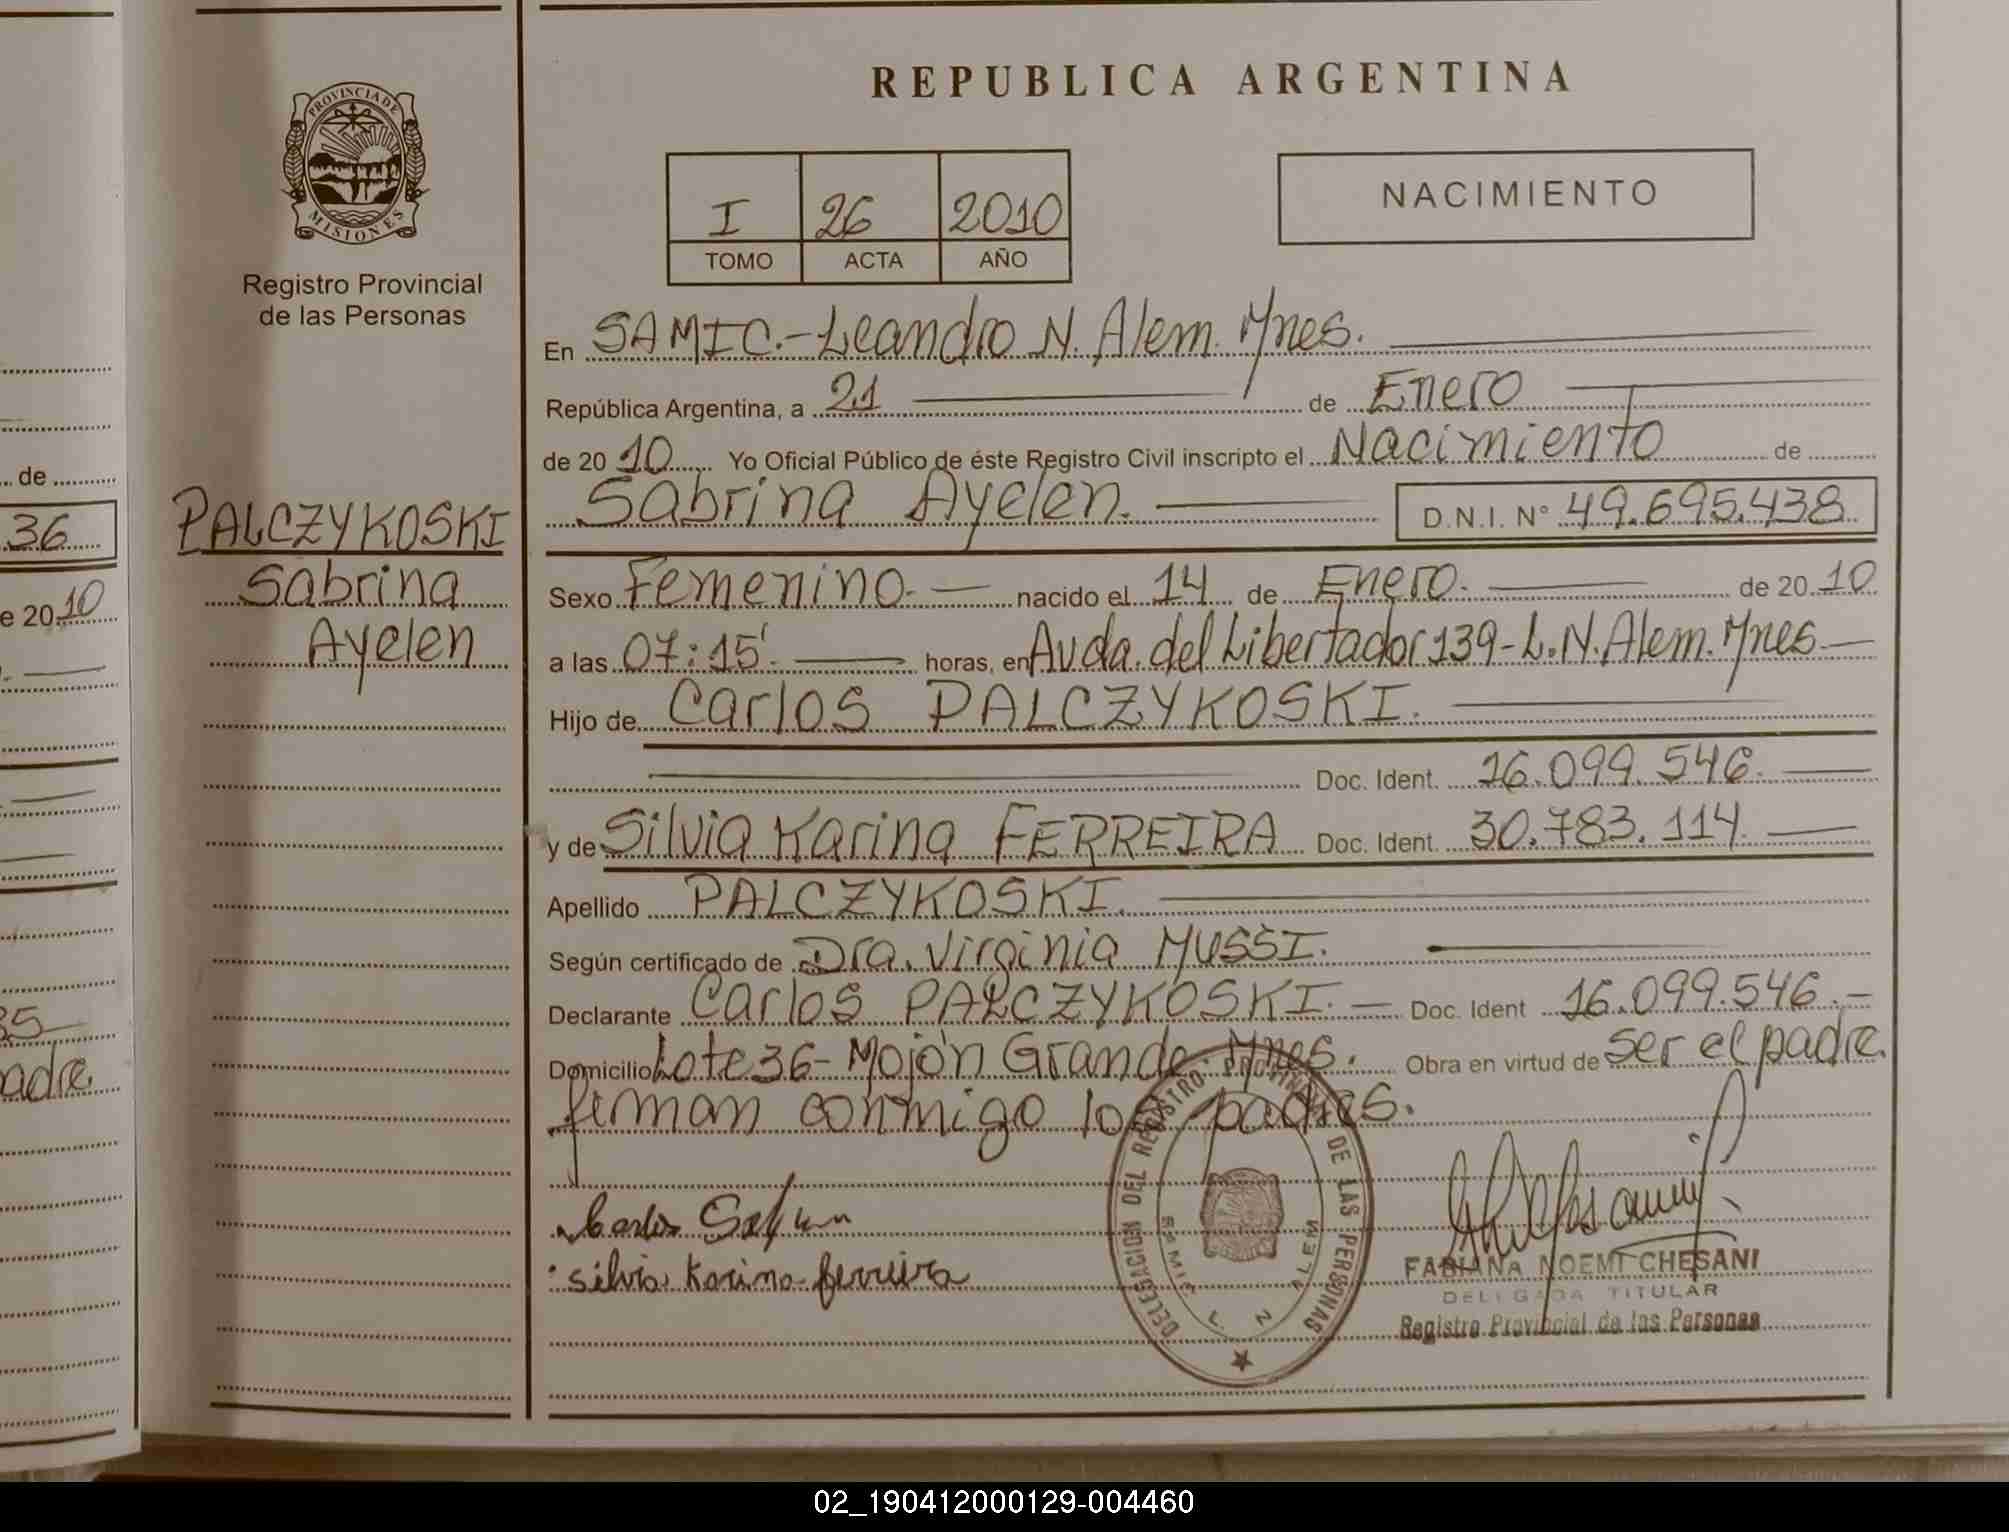 REPUBLICA ARGENTINA
PROVINCIA DE
MISIONES
Registro Provincial
de las Personas
I 26 2010
TOMO ACTA AÑO
NACIMIENTO
En SAMIC.-Leandro N. Alem. Mnes.
República Argentina, a 21 de Enero
de 2010 Yo Oficial Público de éste Registro Civil inscripto el Nacimiento de
Sabrina Ayelen. D.N.I. N° 49.695.438
PALCZYKOSKI
Sabrina
Ayelen
Sexo Femenino.- nacido el 14 de Enero. de 2010
a las 07:15' horas, en Avda. del Libertador 139-L.N.Alem. Mnes
Hijo de Carlos PALCZYKOSKI.
Doc. Ident. 16.099.546.
y de Silvia Karina FERREIRA Doc. Ident. 30.783.114
Apellido PALCZYKOSKI.
Según certificado de Dra. Virginia MUSSI.
Declarante Carlos PALCZYKOSKI.- Doc. Ident 16.099.546.-
Domicilio Lote 36- Mojón Grande. Mnes. Obra en virtud de ser el padre.
firman conmigo los padres.
Carlos
Silvia Karina ferreira
DELEGACION DEL REGISTRO PROVINCIAL DE LAS PERSONAS
SAMIC L. N ALEM
FABIANA NOEMI CHESANI
DELEGADA TITULAR
Registro Provincial de las Personas
de
36
e 2010
35
adre
02_190412000129-004460